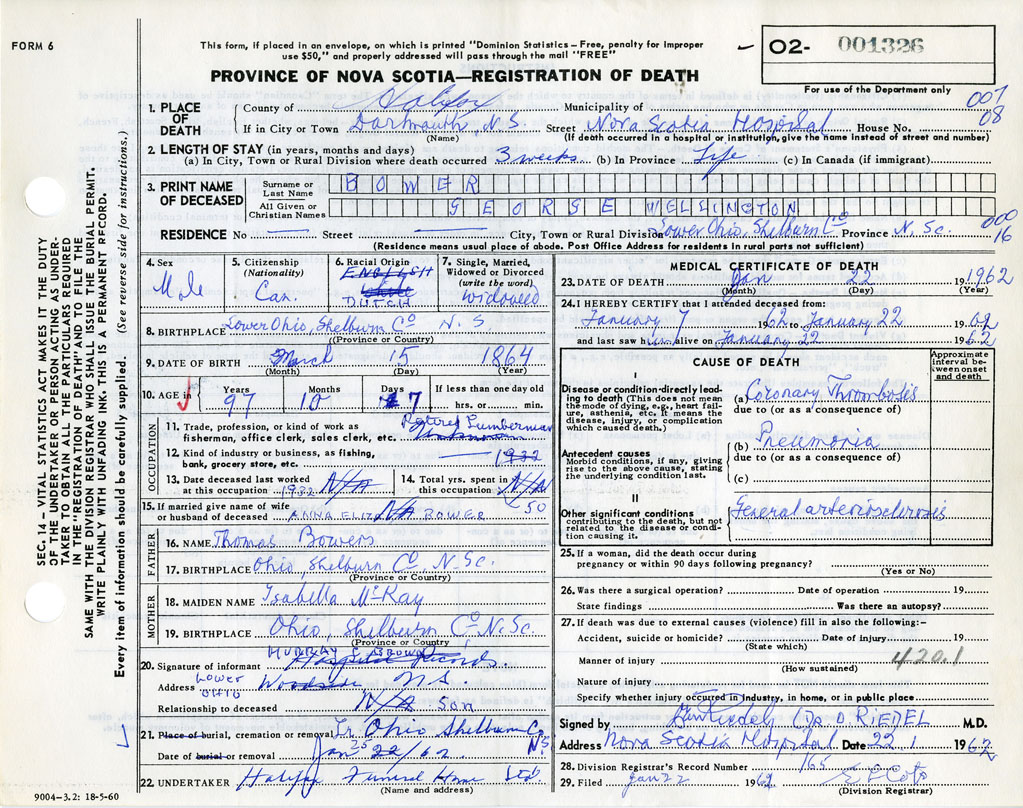 FORM 6
This form, if placed in an envelope, on which is printed "Dominion Statistics – Free, penalty for improper
use $50," and properly addressed will pass through the mail "FREE"
O2- 001326
For use of the Department only
PROVINCE OF NOVA SCOTIA—REGISTRATION OF DEATH
007
08
1. PLACE OF DEATH
County of Halifax Municipality of
If in City or Town Dartmouth, N.S. Street Nova Scotia Hospital House No.
(Name) (If death occurred in a hospital or institution, give the name instead of street and number)
2. LENGTH OF STAY (in years, months and days)
(a) In City, Town or Rural Division where death occurred 3 weeks (b) In Province Life (c) In Canada (if immigrant)
3. PRINT NAME OF DECEASED
Surname or Last Name BOWER
All Given or Christian Names GEORGE WELLINGTON
RESIDENCE No. — Street — City, Town or Rural Division Lower Ohio, Shelburn Co Province N. Sc.
000
16
(Residence means usual place of abode. Post Office Address for residents in rural parts not sufficient)
4. Sex
Male
5. Citizenship
(Nationality)
Can.
6. Racial Origin
ENGLISH
White
DUTCH
7. Single, Married, Widowed or Divorced
(write the word)
widowed
8. BIRTHPLACE Lower Ohio, Shelburn Co N.S.
(Province or Country)
9. DATE OF BIRTH March 15 1864
(Month) (Day) (Year)
10. AGE in
Years Months Days If less than one day old
97 10 7 hrs. or min.
OCCUPATION
11. Trade, profession, or kind of work as
fisherman, office clerk, sales clerk, etc. Retired Lumberman
Unknown
12. Kind of industry or business, as fishing,
bank, grocery store, etc. — 1932
13. Date deceased last worked
at this occupation 1932 N/A
14. Total yrs. spent in
this occupation N/A
50
15. If married give name of wife
or husband of deceased ANNA ELIZ N/A BOWER
FATHER
16. NAME Thomas Bowers
17. BIRTHPLACE Ohio, Shelburn Co N. Sc.
(Province or Country)
MOTHER
18. MAIDEN NAME Isabella McKay
19. BIRTHPLACE Ohio, Shelburn Co, N. Sc.
(Province or Country)
20. Signature of informant Hospital Records.
Address LOWER OHIO Woodside N.S.
Relationship to deceased N/A Son
21. Place of burial, cremation or removal Lr. Ohio Shelburn Co
N.S.
Date of burial or removal Jan 25 22/62
22. UNDERTAKER Halifax Funeral Home Ltd.
(Name and address)
9004-3.2: 18-5-60
MEDICAL CERTIFICATE OF DEATH
23. DATE OF DEATH Jan 22 19 1962
(Month) (Day) (Year)
24. I HEREBY CERTIFY that I attended deceased from:
January 7 1962 to January 22 1962
and last saw him alive on January 22 1962
CAUSE OF DEATH
Approximate interval between onset and death
I
Disease or condition directly leading to death (This does not mean the mode of dying, e.g., heart failure, asthenia, etc. It means the disease, injury, or complication which caused death.)
(a) Coronary Thrombosis
due to (or as a consequence of)
Antecedent causes
Morbid conditions, if any, giving rise to the above cause, stating the underlying condition last.
(b) Pneumonia
due to (or as a consequence of)
(c)
II
Other significant conditions
contributing to the death, but not related to the disease or condition causing it.
General arteriosclerosis
25. If a woman, did the death occur during
pregnancy or within 90 days following pregnancy?
(Yes or No)
26. Was there a surgical operation? Date of operation 19
State findings Was there an autopsy?
27. If death was due to external causes (violence) fill in also the following:-
Accident, suicide or homicide? Date of injury 19
(State which)
Manner of injury 420.1
(How sustained)
Nature of injury
Specify whether injury occurred in industry, in home, or in public place
Signed by (DR. O. RIEDEL M.D.
Address Nova Scotia Hospital Date 22 1 1962
28. Division Registrar's Record Number 165
29. Filed Jan 22 1962
(Division Registrar)
SEC. 14 – VITAL STATISTICS ACT MAKES IT THE DUTY
OF THE UNDERTAKER OR PERSON ACTING AS UNDERTAKER
TO OBTAIN ALL THE PARTICULARS REQUIRED
IN THE "REGISTRATION OF DEATH" AND TO FILE THE
SAME WITH THE DIVISION REGISTRAR WHO SHALL ISSUE THE BURIAL PERMIT.
WRITE PLAINLY WITH UNFADING INK. THIS IS A PERMANENT RECORD.
Every item of information should be carefully supplied. (See reverse side for instructions.)